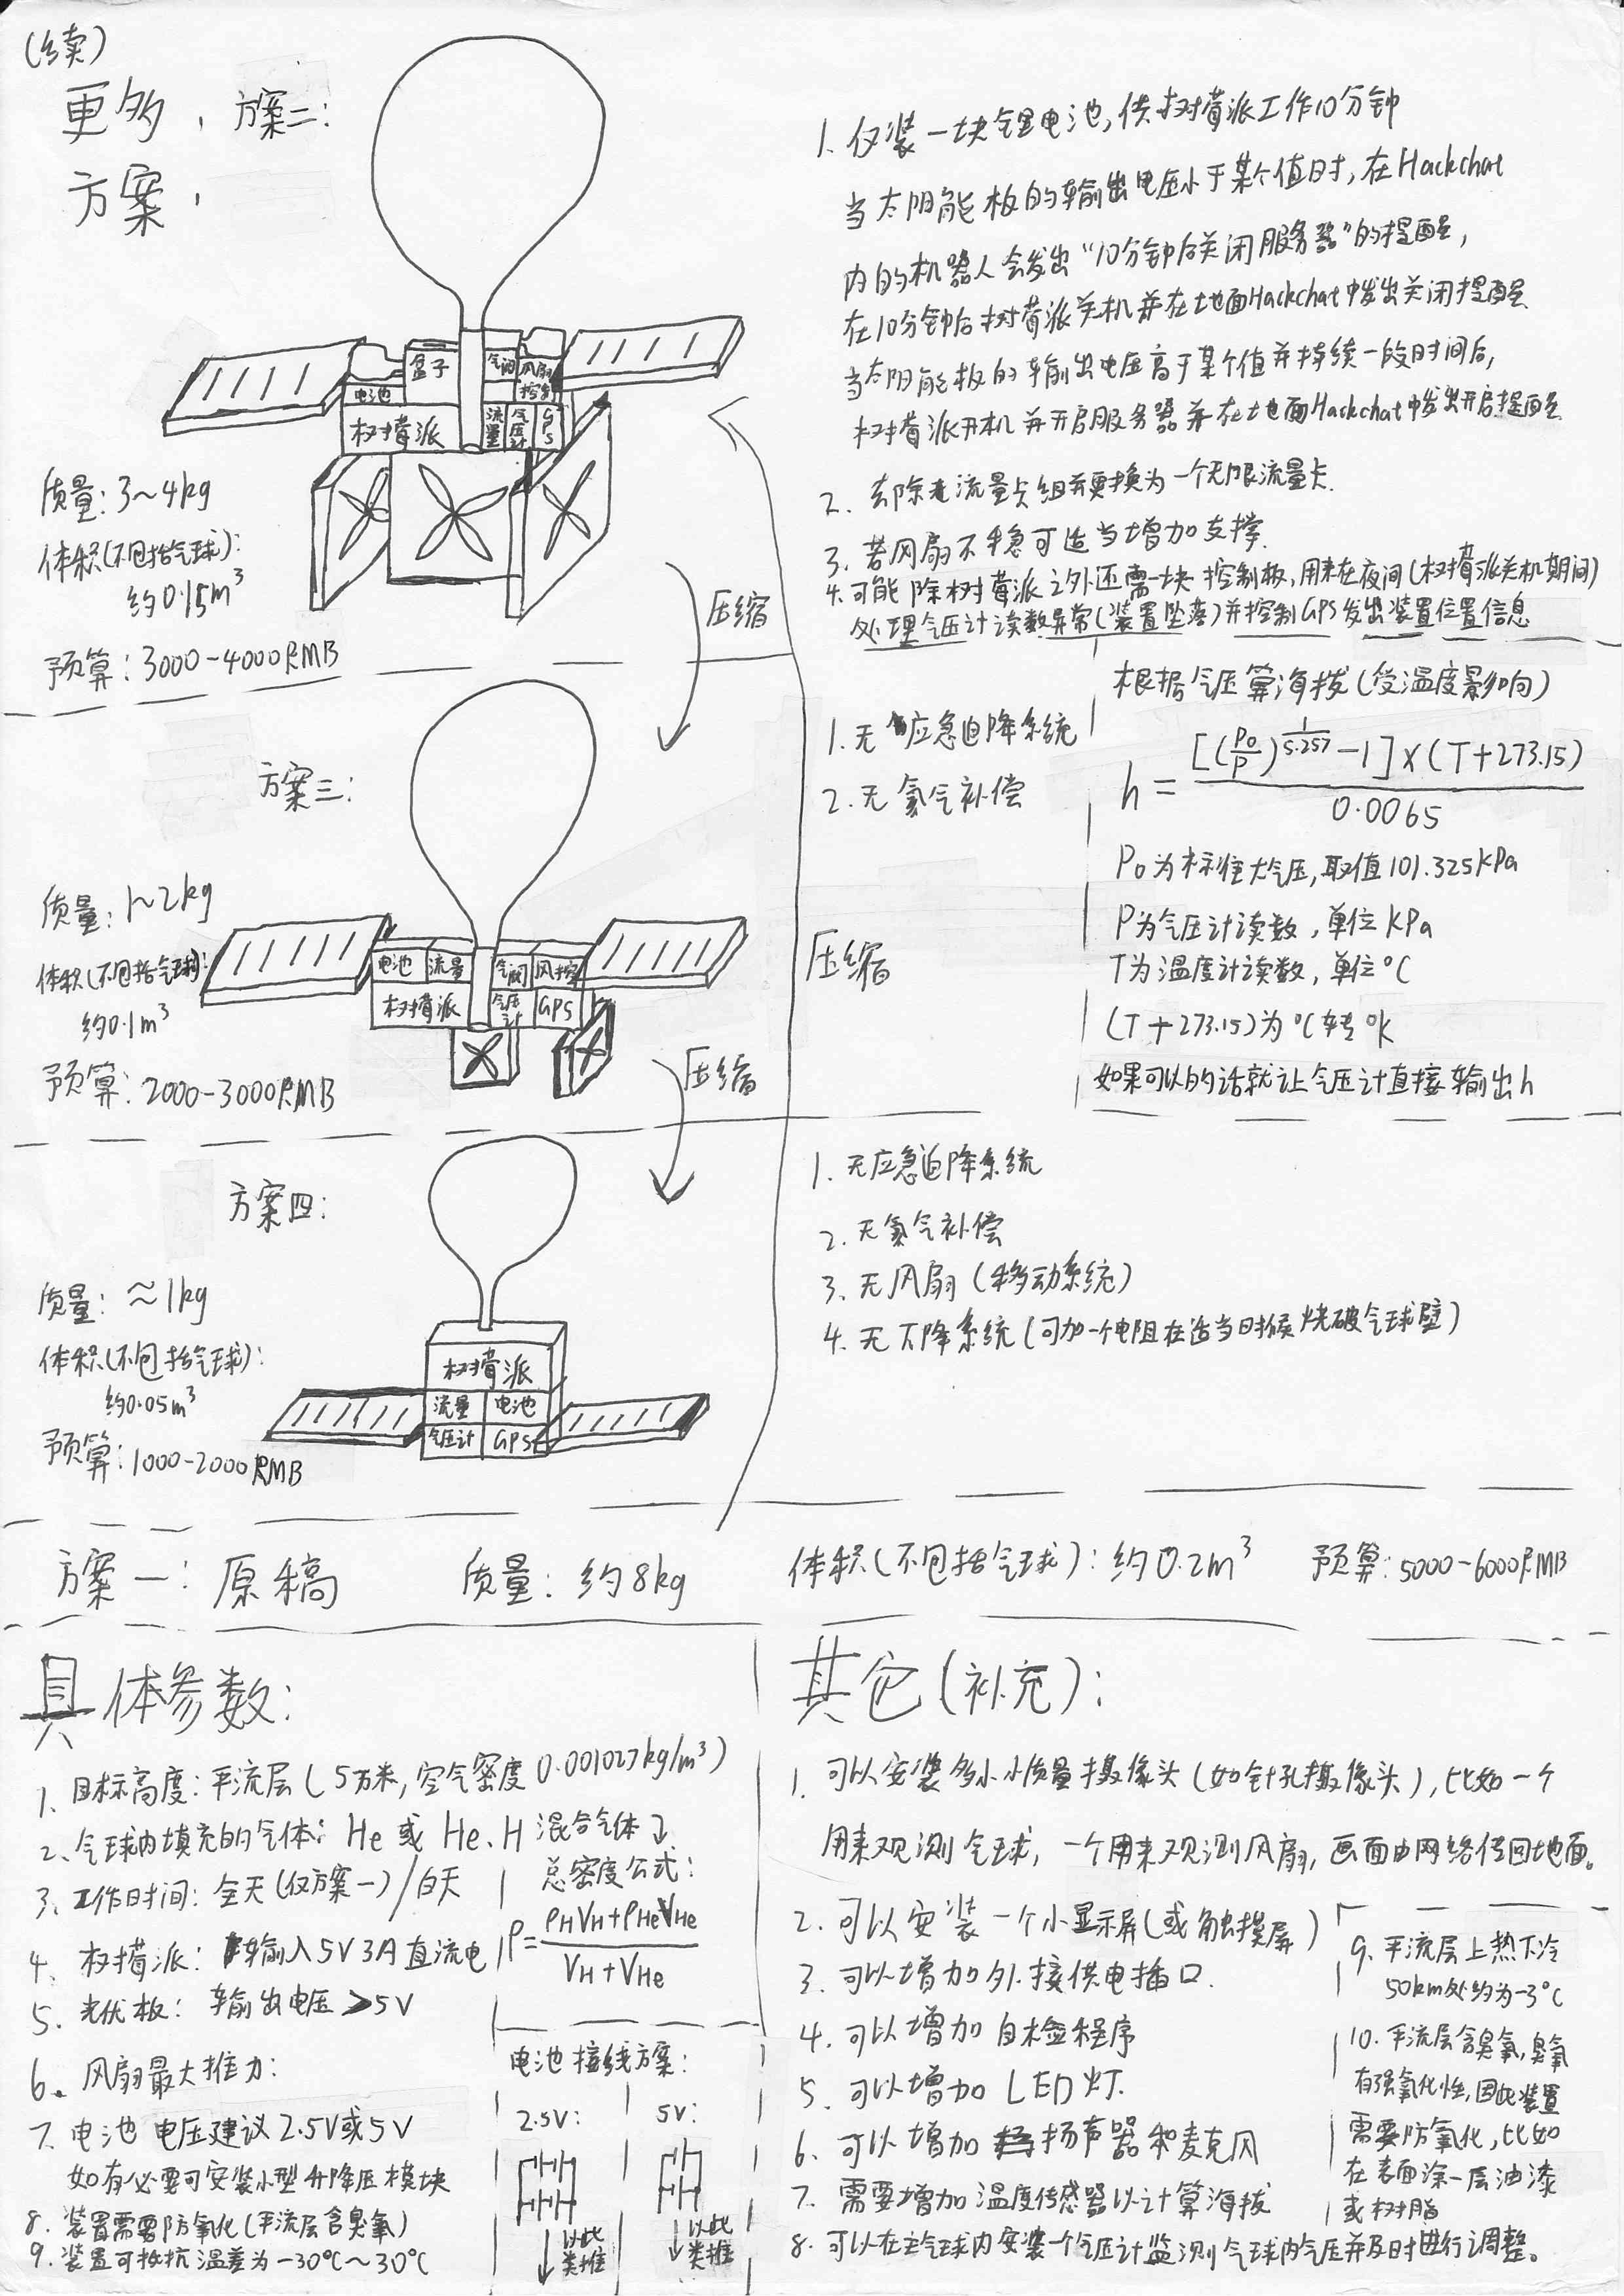 (续)
更多
方案
方案二:
盒子
电池
树莓派
气阀
风扇
控制
流量
气压计
GPS
质量: 3~4kg
体积(不包括气球):
约0.15m³
预算: 3000-4000RMB
压缩
1. 仅装一块锂电池, 供树莓派工作10分钟
当太阳能板的输出电压小于某个值时, 在Hackchat
内的机器人会发出“10分钟后关闭服务器”的提醒,
在10分钟后树莓派关机并在地面Hackchat中发出关闭提醒
当太阳能板的输出电压高于某个值并持续一段时间后,
树莓派开机并开启服务器并在地面Hackchat中发出开启提醒
2. 去除流量卡组并更换为一个无限流量卡.
3. 若风扇不稳可适当增加支撑.
4. 可能除树莓派之外还需一块控制板, 用来在夜间(树莓派关机期间)
处理气压计读数异常(装置坠落)并控制GPS发出装置位置信息
方案三:
电池
流量
气阀
风控
树莓派
气压计
GPS
质量: 1~2kg
体积(不包括气球):
约0.1m³
预算: 2000-3000RMB
压缩
1. 无应急迫降系统
2. 无氦气补偿
压缩
根据气压算海拔(受温度影响)
h = [(P₀/P)^(1/5.257) -1]×(T+273.15) / 0.0065
P₀为标准大气压, 取值101.325kPa
P为气压计读数, 单位kPa
T为温度计读数, 单位°C
(T+273.15)为°C转°K
如果可以的话就让气压计直接输出h
方案四:
树莓派
流量
电池
气压计
GPS
质量: ≈1kg
体积(不包括气球):
约0.05m³
预算: 1000-2000RMB
1. 无应急迫降系统
2. 无氦气补偿
3. 无风扇(移动系统)
4. 无下降系统(可加一个电阻在适当时候烧破气球壁)
方案一: 原稿 质量: 约8kg 体积(不包括气球): 约0.2m³ 预算: 5000-6000RMB
具体参数:
1. 目标高度: 平流层(5万米, 空气密度0.001027kg/m³)
2. 气球内填充的气体: He 或 He、H 混合气体
3. 工作时间: 全天(仅方案一)/白天
4. 树莓派: 输入5V 3A直流电
5. 光伏板: 输出电压≥5V
6. 风扇最大推力:
7. 电池电压建议2.5V或5V
如有必要可安装小型升降压模块
8. 装置需要防氧化(平流层含臭氧)
9. 装置可抵抗温差为-30°C~30°C
总密度公式:
ρ = (ρHVH+ρHeVHe) / (VH+VHe)
电池接线方案:
2.5V:
以此
类推
5V:
以此
类推
其它(补充):
1. 可以安装多小小质量摄像头(如针孔摄像头), 比如一个
用来观测气球, 一个用来观测风扇, 画面由网络传回地面。
2. 可以安装一个小显示屏(或触摸屏)
3. 可以增加外接供电插口.
4. 可以增加自检程序
5. 可以增加LED灯.
6. 可以增加扬声器和麦克风
7. 需要增加温度传感器以计算海拔
8. 可以在主气球内安装一个气压计监测气球内气压并及时进行调整。
9. 平流层上热下冷
50km处约为-3°C
10. 平流层含臭氧, 臭氧
有强氧化性, 因此装置
需要防氧化, 比如
在表面涂一层油漆
或树脂